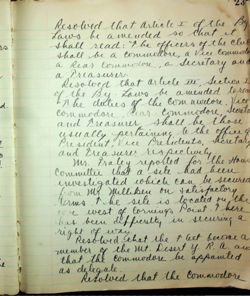 25
Resolved that Article I of the By
Laws be amended so that it
shall read: The officers of the Club
shall be a Commodore, a Vice Commodore
a Rear Commodore, a Secretary and
a Treasurer.
Resolved that Article III, section
of the By-Laws be amended to read
The duties of the Commodore, Vice
Commodore, Rear Commodore, Secretary
and Treasurer shall be those
usually pertaining to the office of
President, Vice Presidents, Secretary
and Treasurer respectively.
Mr. Fraley reported for the House
Committee that a site had been
investigated which can be secured
from Mr. Milliken on satisfactory
terms. The site is located on the
west of Cornings Point. There
has been difficulty in securing a
right of way.
Resolved that the Fleet become a
member of the Mt. Desert Y. R. A. and
that the Commodore be appointed
as delegate.
Resolved that the Commodore